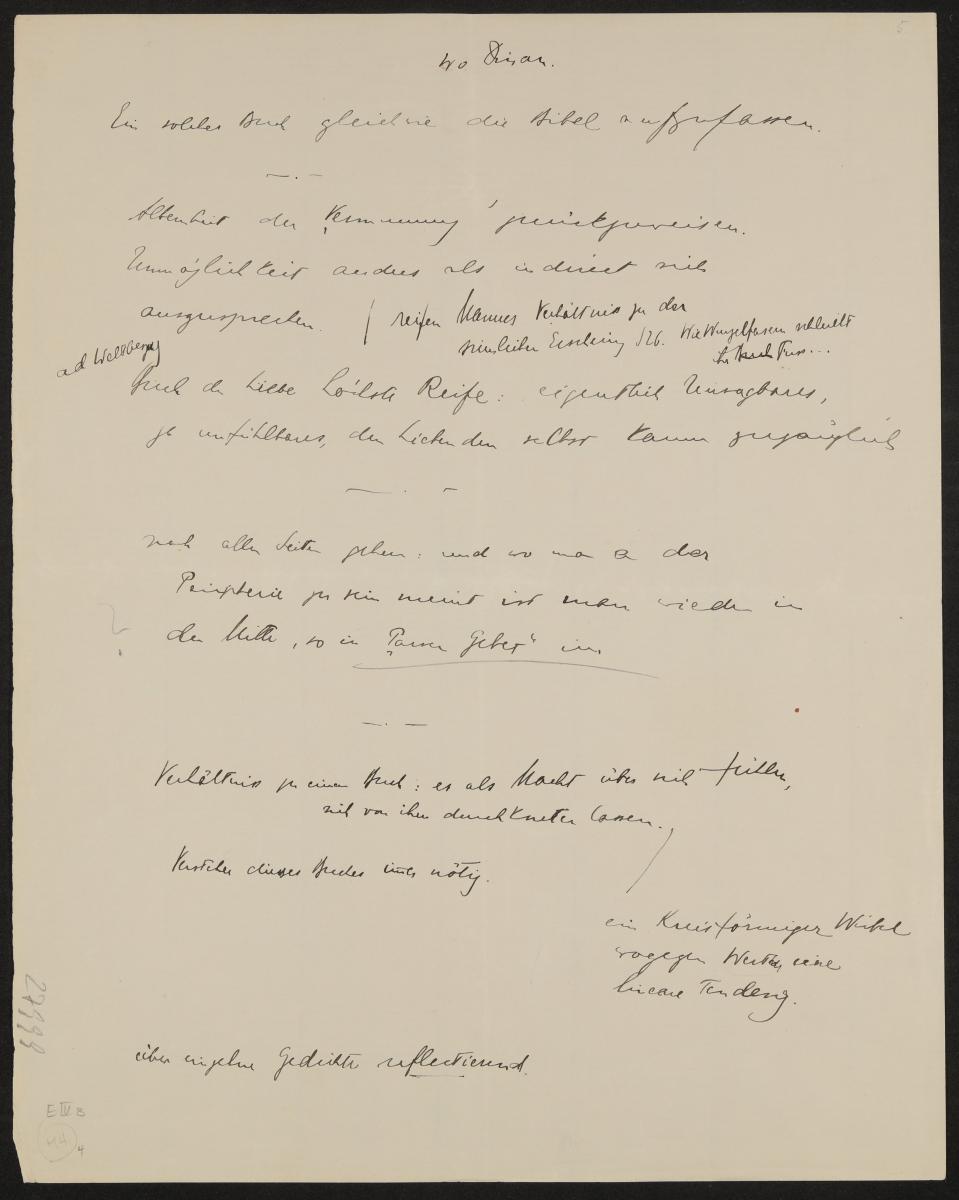 5
W O Divan.
Ein solches Buch gleichwie die Bibel aufzufassen.
Albernheit der „Vermummung" zurückzuweisen.
Unmöglichkeit anders als indirect sich
auszusprechen. reifen Mannes Verhältniss zu der
sinnlichen Erscheinung 126. Wie Wurzelfasern schleicht
ihr Fuss...
ad Wellbergg
Buch der Liebe höchste Reife: eigentlich Unsagbares,
ja unfühlbares, den Liebenden selbst kaum zugänglich
nach allen Seiten gehen: und wo man an der
Peripherie zu sein meint ist man wieder in
der Mitte, so in „Parsen Gebet" im
Verhältniss zu einem Buch: es als Macht über sich fühlen,
sich von ihm durchkneten lassen.
Verstehen dieses Buches immer nötig.
ein kreisförmiger Wirbel
wogegen Werther eine
lineare Tendenz.
über einzelne Gedichte reflectierend.
27998
E IV B
44
4